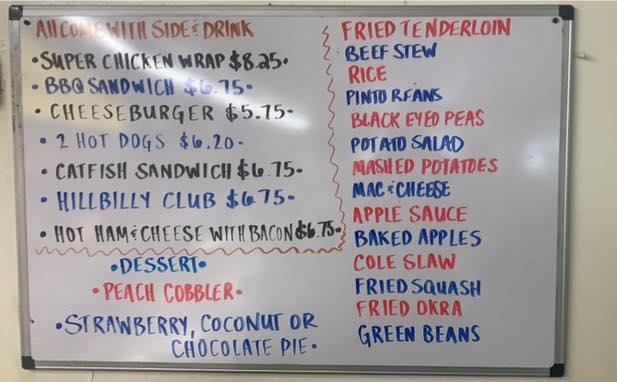 All COME WITH SIDE & DRINK
• SUPER CHICKEN WRAP $8.25 •
• BBQ SANDWICH $6.75 -
• CHEESEBURGER $5.75 -
• 2 HOT DOGS $6.20 -
• CATFISH SANDWICH $6.75 -
• HILLBILLY CLUB $6.75 -
• HOT HAM & CHEESE WITH BACON $6.75 -
• DESSERT •
• PEACH COBBLER •
• STRAWBERRY, COCONUT OR
CHOCOLATE PIE •
FRIED TENDERLOIN
BEEF STEW
RICE
PINTO BEANS
BLACK EYED PEAS
POTATO SALAD
MASHED POTATOES
MAC & CHEESE
APPLE SAUCE
BAKED APPLES
COLE SLAW
FRIED SQUASH
FRIED OKRA
GREEN BEANS